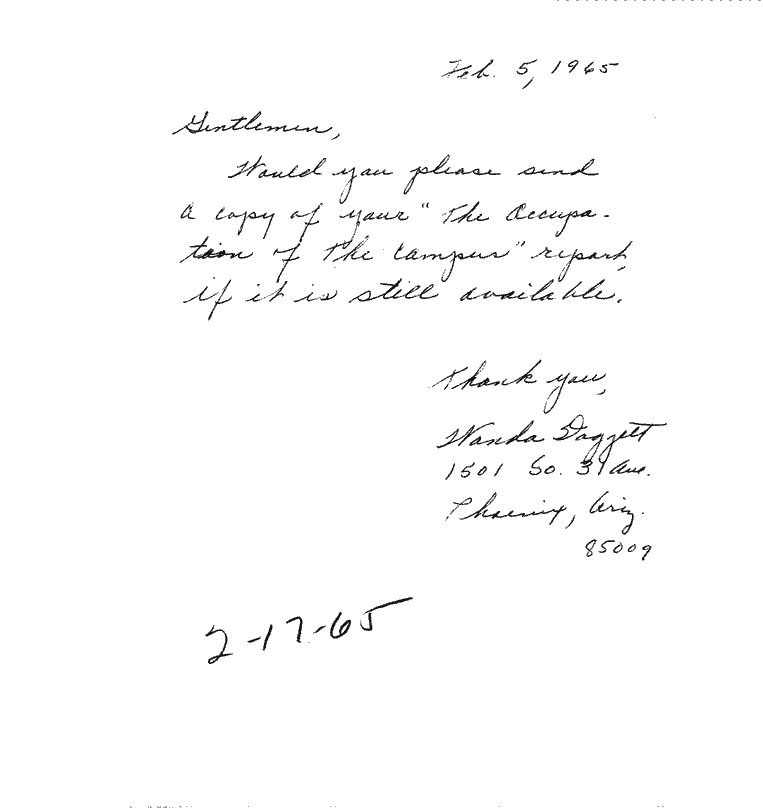 Feb. 5, 1965
Gentlemen,
Would you please send
a copy of your "The Occupa-
tion of the Campus" report,
if it is still available.
Thank you,
Wanda Daggett
1501 So. 31 Ave.
Phoenix, Ariz.
85009
2-17-65